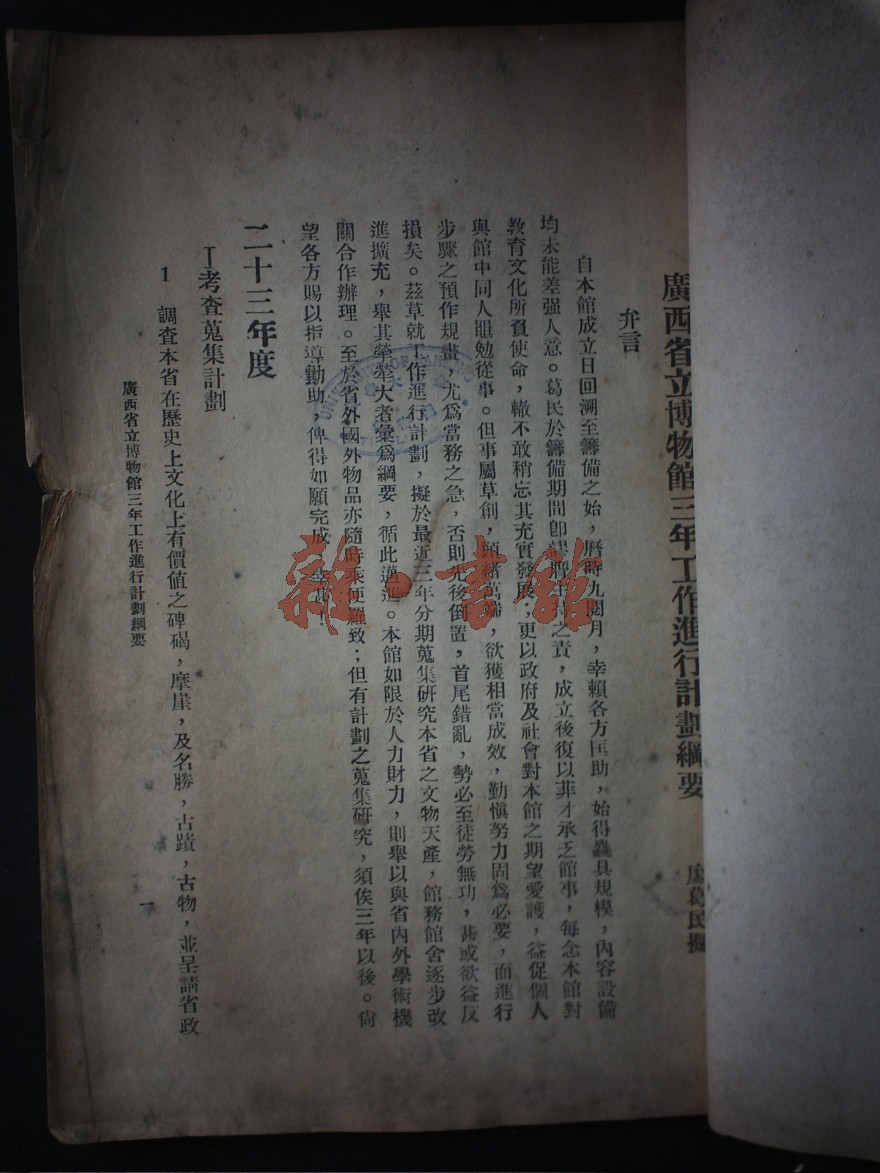 廣西省立博物館三年工作進行計劃綱要
葛民擬
弁言
自本館成立日回溯至籌備之始，曆時九閱月，幸賴各方匡助，始得粗具規模，內容設備
均未能差强人意。葛民於籌備期間卽
之責，成立後復以菲才承乏館事，每念本館對
教育文化所負使命，輒不敢稍忘其充實發展；更以政府及社會對本館之期望愛護，益促個人
與館中同人黽勉從事。但事屬草創，頭緒萬端，欲獲相當成效，勤愼努力固爲必要，而進行
步驟之預作規畫，尤爲當務之急，否則先後倒置，首尾錯亂，勢必至徒勞無功，甚或欲益反
損矣。茲草就工作進行計劃，擬於最近三年分期蒐集研究本省之文物天產，館務館舍逐步改
進擴充，舉其犖犖大者彙爲綱要，循此邁進。本館如限於人力財力，則舉以與省內外學術機
關合作辦理。至於省外國外物品亦隨時乘便羅致；但有計劃之蒐集研究，須俟三年以後。尙
望各方賜以指導勷助，俾得如願完成
二十三年度
I考查蒐集計劃
1 調查本省在歷史上文化上有價値之碑碣，摩崖，及名勝，古蹟，古物，並呈請省政
廣西省立博物館三年工作進行計劃綱要
一
雜·書館